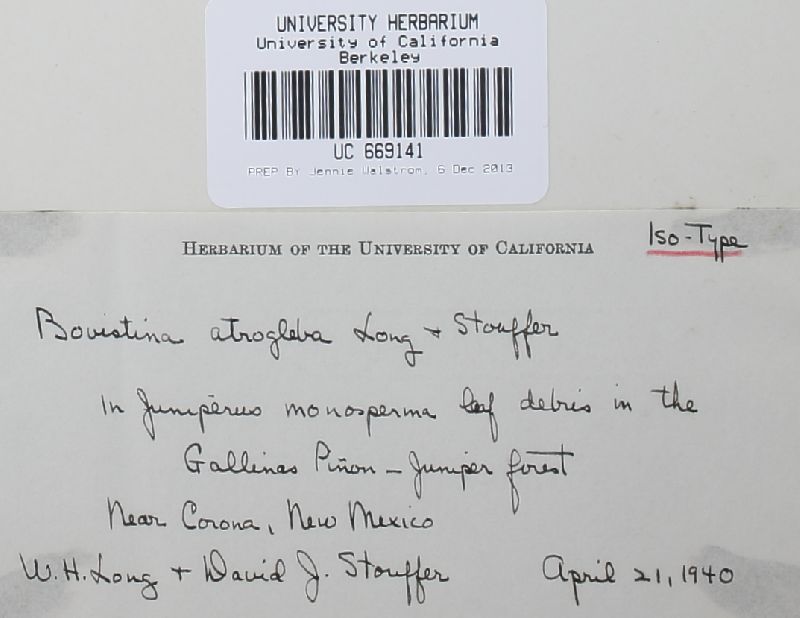 UNIVERSITY HERBARIUM
University of California
Berkeley
UC 669141
PREP BY Jennie Walstrom, 6 Dec 2013
HERBARIUM OF THE UNIVERSITY OF CALIFORNIA
Iso-Type
Bovistina atrogleba Long + Stouffer
In Juniperus monosperma leaf debris in the
Gallinas Piñon - Juniper forest
Near Corona, New Mexico
W.H. Long + David J. Stouffer April 21, 1940